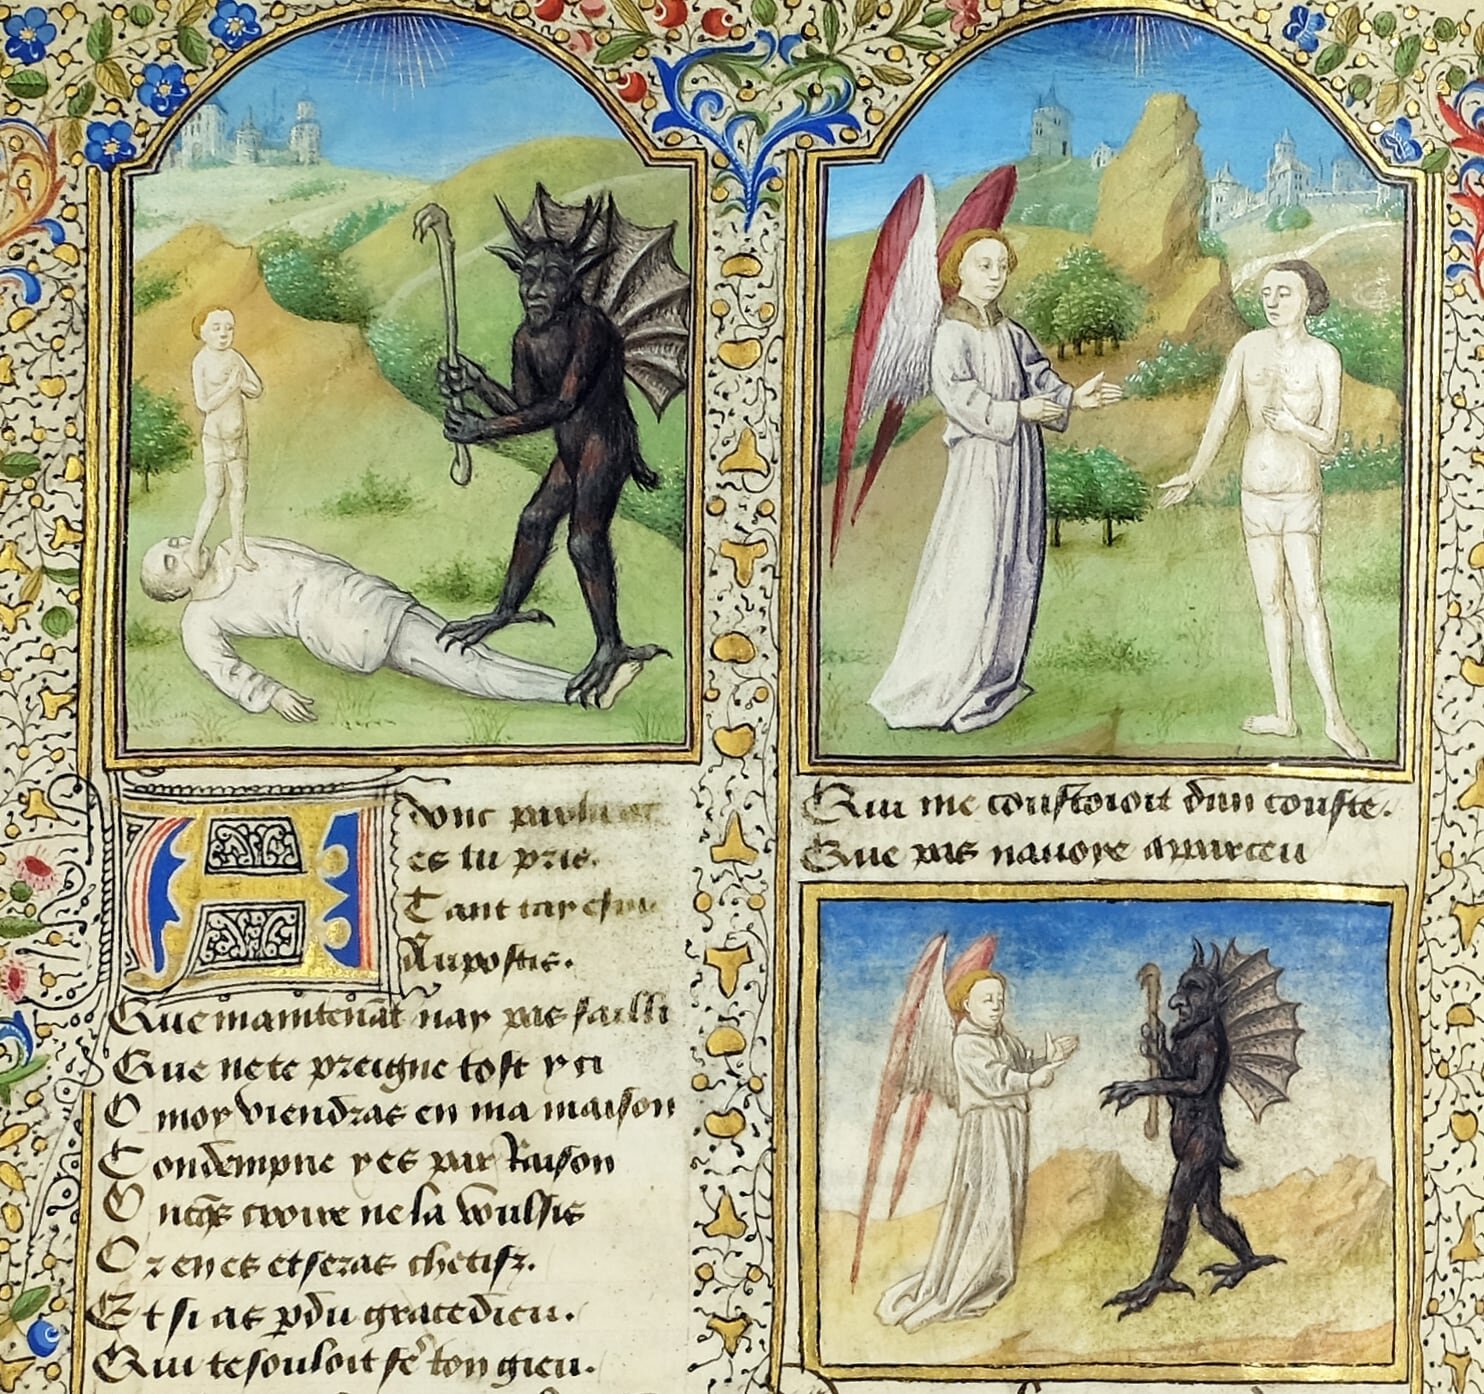 Adonc
es tu pris.
Tant tay
Aupostis.
Que maintenāt nay pas failli
Que ne te preigne tost y ci
O moy viendras en ma maison
Condempne y es par Raison
Oncq̄s croire ne la voulsis
Or en es et seras chetifz.
Et si as p̄du grace dieu.
Qui te souloit fē ton gieu.
Qui me coustoioit dun couste.
Que pas nauoye apparceu